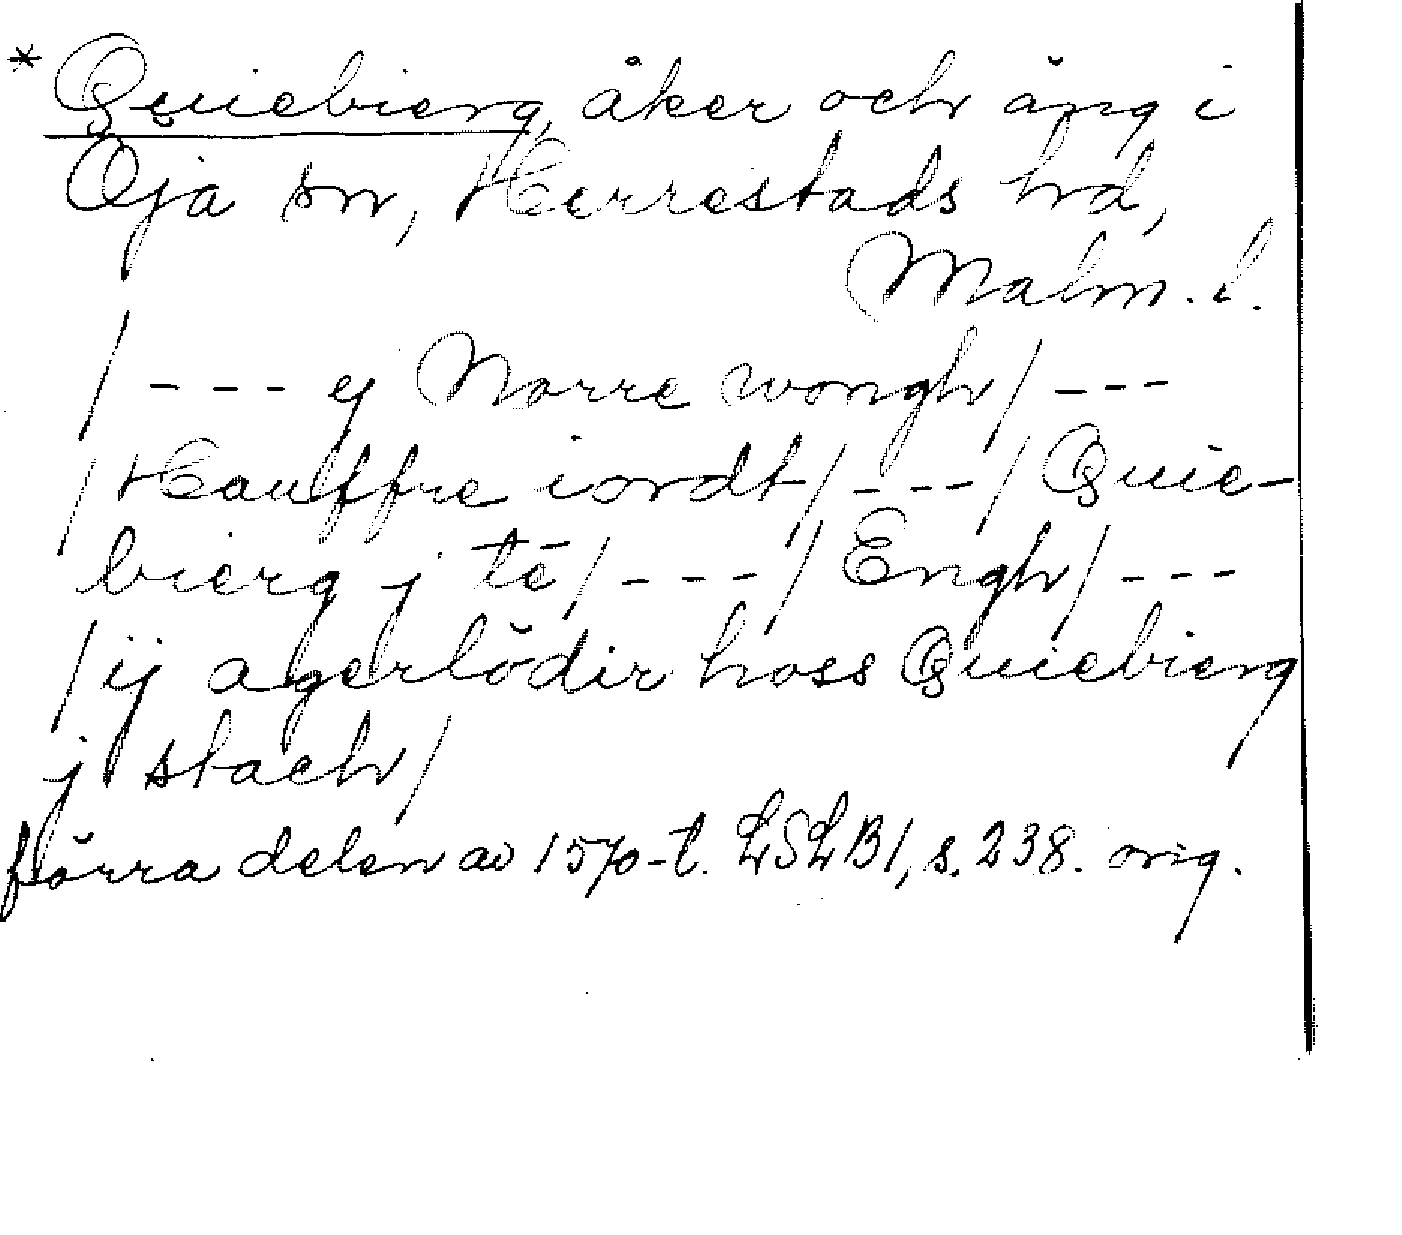 * Quiebierg, åker och äng i
Öja sn, Herrestads hd,
Malm. l.
/--- ej Norre wongh/ ---
/Hauffre iordt/ --- / Quie-
bierg j tē/ --- / Engh/ ---
/ij agerlödir hoss Quiebierg
j stach/
förra delen av 1570-t. LSLB1, s. 238. orig.